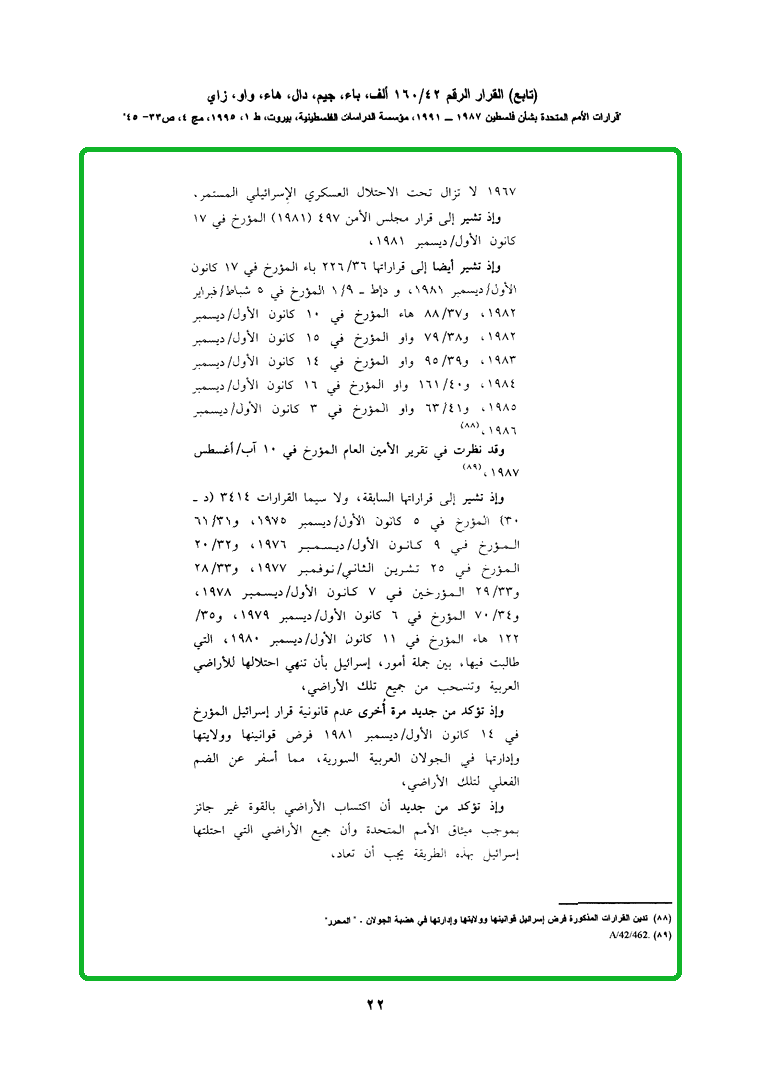 (تابع) القرار الرقم ١٦٠/٤٢ ألف، باء، جيم، دال، هاء، واو، زاي
"قرارات الأمم المتحدة بشأن فلسطين ١٩٨٧ ــ ١٩٩١، مؤسسة الدراسات الفلسطينية، بيروت، ط ١، ١٩٩٥، مج ٤، ص٣٣- ٤٥"
١٩٦٧ لا تزال تحت الاحتلال العسكري الإسرائيلي المستمر.
وإذ تشير إلى قرار مجلس الأمن ٤٩٧ (١٩٨١) المؤرخ في ١٧
كانون الأول/ديسمبر ١٩٨١،
وإذ تشير أيضا إلى قراراتها ٢٢٦/٣٦ باء المؤرخ في ١٧ كانون
الأول/ديسمبر ١٩٨١، و دإط ـ ١/٩ المؤرخ في ٥ شباط/فبراير
١٩٨٢، و٨٨/٣٧ هاء المؤرخ في ١٠ كانون الأول/ديسمبر
١٩٨٢، و٧٩/٣٨ واو المؤرخ في ١٥ كانون الأول/ديسمبر
١٩٨٣، و٩٥/٣٩ واو المؤرخ في ١٤ كانون الأول/ديسمبر
١٩٨٤، و١٦١/٤٠ واو المؤرخ في ١٦ كانون الأول/ديسمبر
١٩٨٥، و٦٣/٤١ واو المؤرخ في ٣ كانون الأول/ديسمبر
١٩٨٦،(٨٨)
وقد نظرت في تقرير الأمين العام المؤرخ في ١٠ آب/أغسطس
١٩٨٧،(٨٩)
وإذ تشير إلى قراراتها السابقة، ولا سيما القرارات ٣٤١٤ (د ـ
٣٠) المؤرخ في ٥ كانون الأول/ديسمبر ١٩٧٥، و٦١/٣١
المؤرخ في ٩ كانون الأول/ديسمبر ١٩٧٦، و٢٠/٣٢
المؤرخ في ٢٥ تشرين الثاني/نوفمبر ١٩٧٧، و٢٨/٣٣
و٢٩/٣٣ المؤرخين في ٧ كانون الأول/ديسمبر ١٩٧٨،
و٧٠/٣٤ المؤرخ في ٦ كانون الأول/ديسمبر ١٩٧٩، و٣٥/
١٢٢ هاء المؤرخ في ١١ كانون الأول/ديسمبر ١٩٨٠، التي
طالبت فيها، بين جملة أمور، إسرائيل بأن تنهي احتلالها للأراضي
العربية وتنسحب من جميع تلك الأراضي،
وإذ تؤكد من جديد مرة أُخرى عدم قانونية قرار إسرائيل المؤرخ
في ١٤ كانون الأول/ديسمبر ١٩٨١ فرض قوانينها وولايتها
وإدارتها في الجولان العربية السورية، مما أسفر عن الضم
الفعلي لتلك الأراضي،
وإذ تؤكد من جديد أن اكتساب الأراضي بالقوة غير جائز
بموجب ميثاق الأمم المتحدة وأن جميع الأراضي التي احتلتها
إسرائيل بهذه الطريقة يجب أن تعاد،
(٨٨) تدين القرارات المذكورة فرض إسرائيل قوانينها وولايتها وإدارتها في هضبة الجولان . " المحرر"
(٨٩) A/42/462.
٢٢